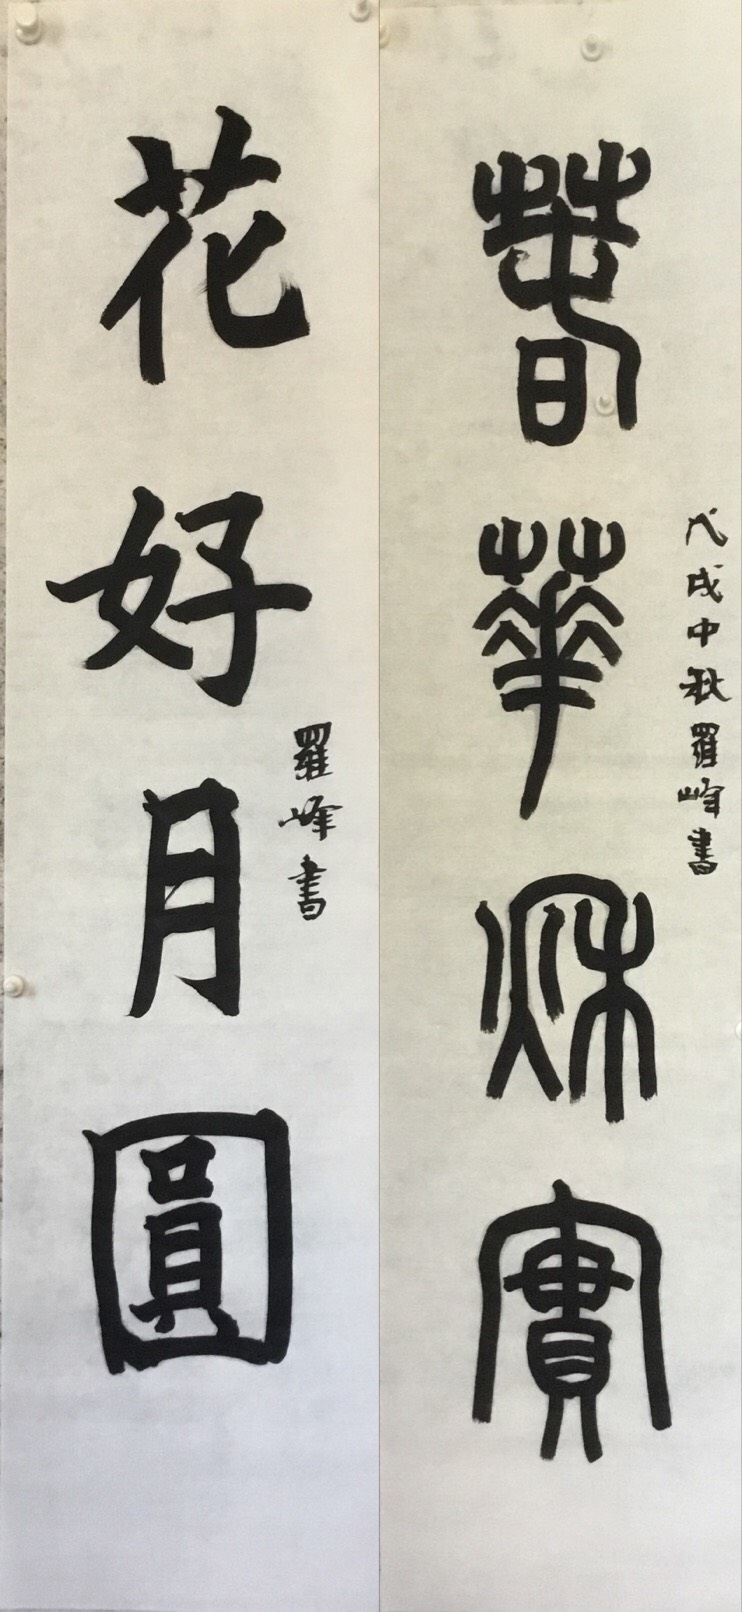 春華秋實
戊戌中秋羅峰書
花好月圓
羅峰書